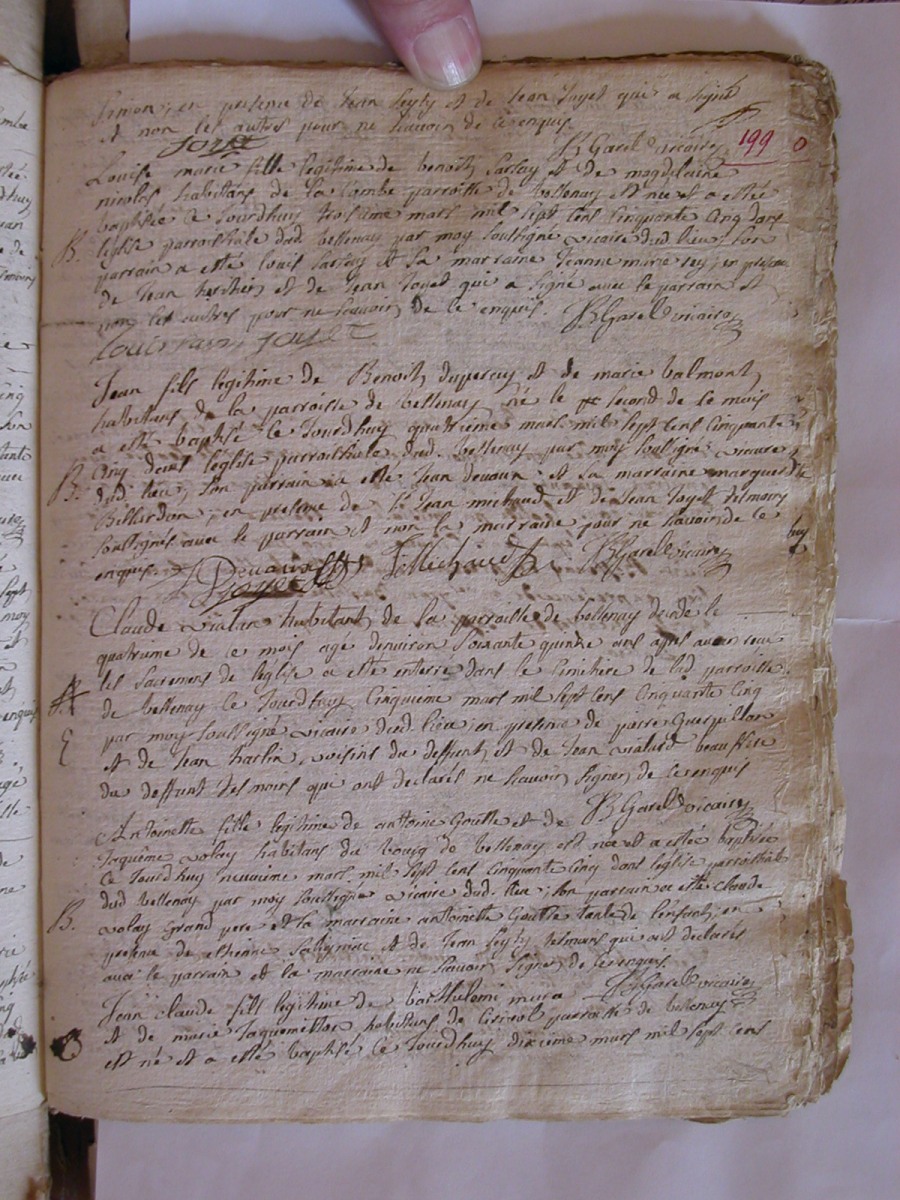 Simon, en presence de Jean Seyty et de Jean Joyet qui a signé
et non les autres pour ne scavoir de ce enquis
Joyet B Garel vicaire 199
Louise marie fille legitime de benoit sarsay et de magdelaine
nicolas habitans de la Combe parroisse de bellenay est née et a estée
baptisée ce jourdhuy troisieme mars mil sept cens cinquante cinq dans
B. leglise parroichiale dud bellenay par moy soussigné vicaire dud lieu, son
parrain a esté louis sarsay et sa marraine jeanne marie rey, en presence
de Jean et de Jean Joyet qui a signé avec le parrain et
non les autres pour ne scavoir de ce enquis. B Garel vicaire
Louis Joyet
Jean fils legitime de Benoit duperay et de marie valmont
habittans de la parroisse de bellenay né le second de ce mois
a esté baptisé ce jourdhuy quatrieme mars mil sept cens cinquante
B. cinq dans leglise parroichiale dud. bellenay par moy soussigné vicaire
dud lieu, son parrain a esté Jean devaux et sa marraine marguerite
Billardon, en presence de Sr Jean michaud et de Jean Joyet temoins
soussignés avec le parrain et non la marraine pour ne scavoir de ce
enquis. J Devaux J Michaud B Garel vicaire
Joyet
Claude vialan habitant de la parroisse de bellenay decedé le
quatrieme de ce mois age denviron soixante quinze ans apres avoir receu
les sacremens de léglise a esté enterré dans le cimitiere de lad parroisse
de bellenay ce jourdhuy cinquieme mars mil sept cens cinquante cinq
E par moy soussigné vicaire dud. lieu, en presence de pierre Guerpillon
et de Jean harlin, voisins du deffunt, et de Jean vialard beau frere
du deffunt temoins qui ont declarés ne scavoir signer de ce enquis
B Garel vicaire
Antoinette fille legitime de antoine Goutte et de
Jaquême volay habitans du bourg de bellenay est née et a estée baptisée
ce jourdhuy neuvieme mars mil sept cens cinquante cinq dans léglise parroichiale
dud bellenay par moy soussigné vicaire dud. lieu, son parrain a esté claude
B. volay grand pere et la marraine antoinette Goutte tante de lenfant, en
presence de ethienne salignac et de Jean Seyty temoins qui ont declarés
avec le parrain et la marraine ne scavoir signer de ce enquis
B Garel vicaire
Jean claude fils legitime de barthelemi mura
et de marie Jaquemettor habitans de parroisse de bellenay
est né et a esté baptisé ce jourdhuy dixieme mars mil sept cens